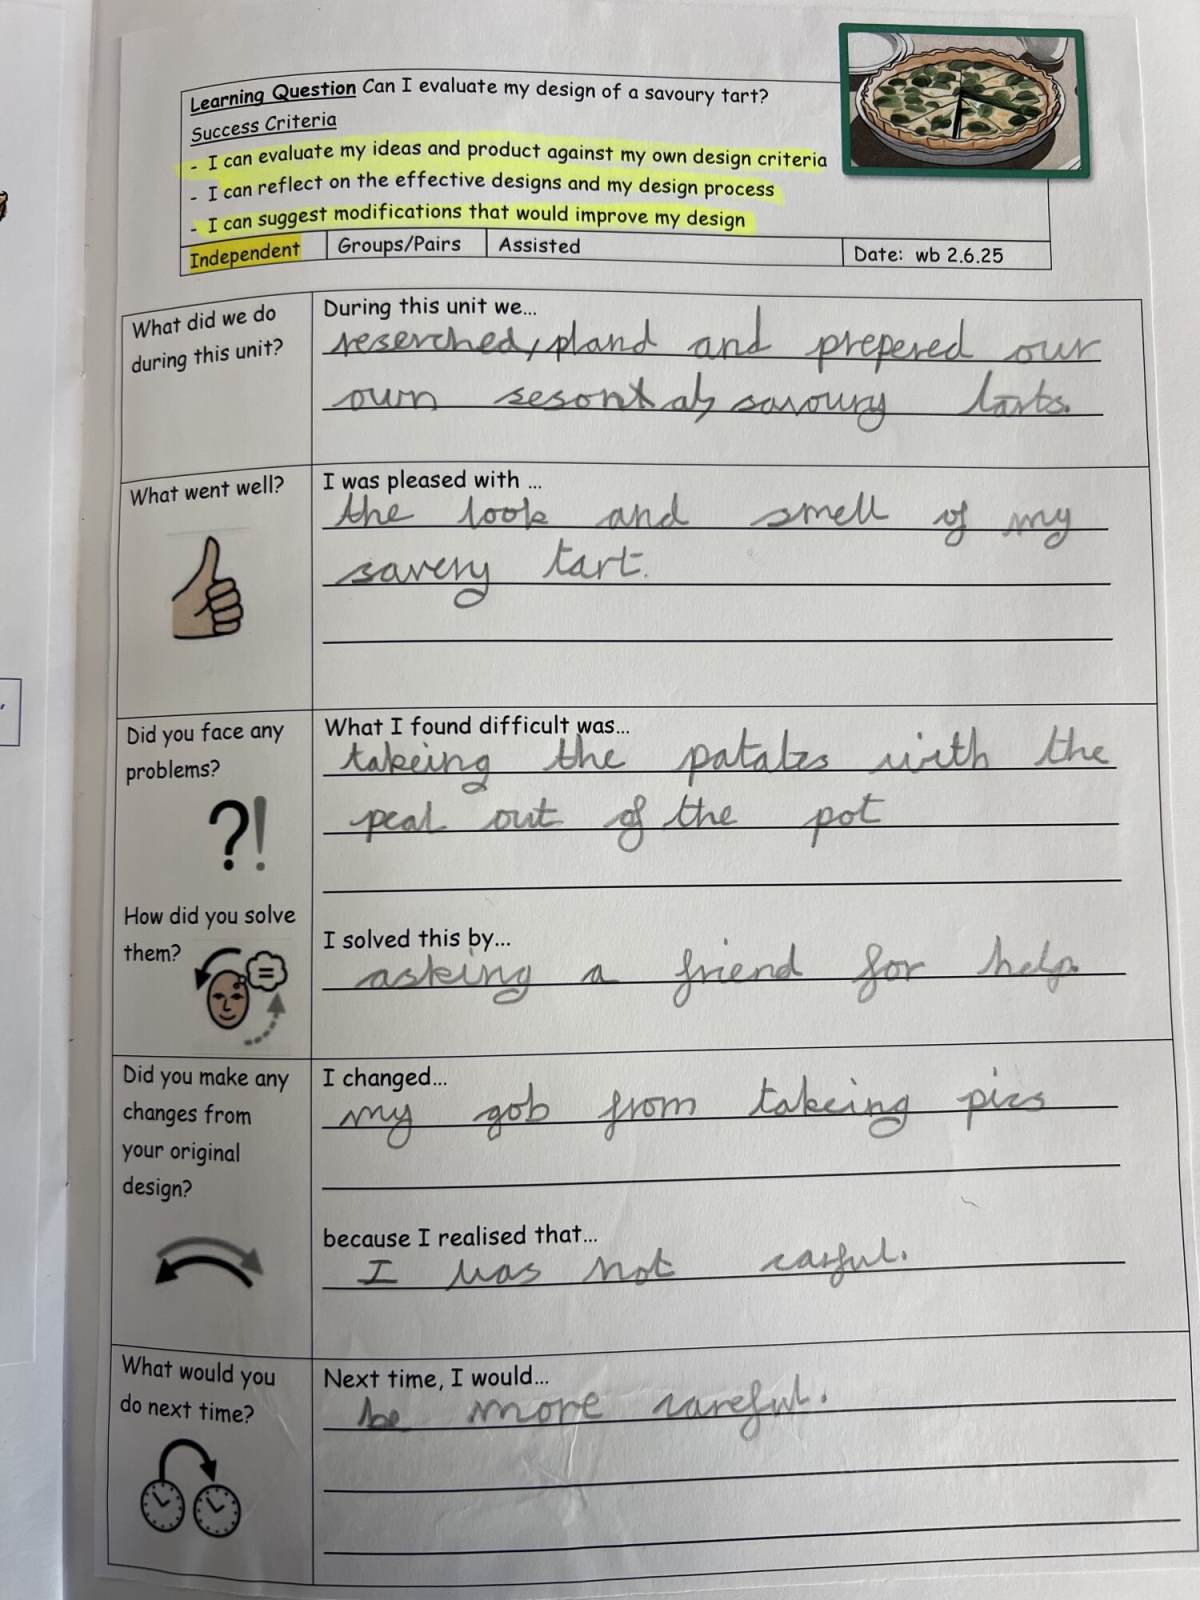 Learning Question Can I evaluate my design of a savoury tart?
Success Criteria
- I can evaluate my ideas and product against my own design criteria
- I can reflect on the effective designs and my design process
- I can suggest modifications that would improve my design
Independent Groups/Pairs Assisted Date: wb 2.6.25
What did we do
during this unit?
During this unit we...
reserched, pland and prepered our
own savoury tarts.
What went well?
I was pleased with ...
the look and smell of my
savery tart.
Did you face any
problems?
What I found difficult was...
takeing the with the
peal out of the pot
How did you solve
them?
I solved this by...
asking a friend for help.
Did you make any
changes from
your original
design?
I changed...
my gob from takeing pics
because I realised that...
I was not
What would you
do next time?
Next time, I would...
be more careful.